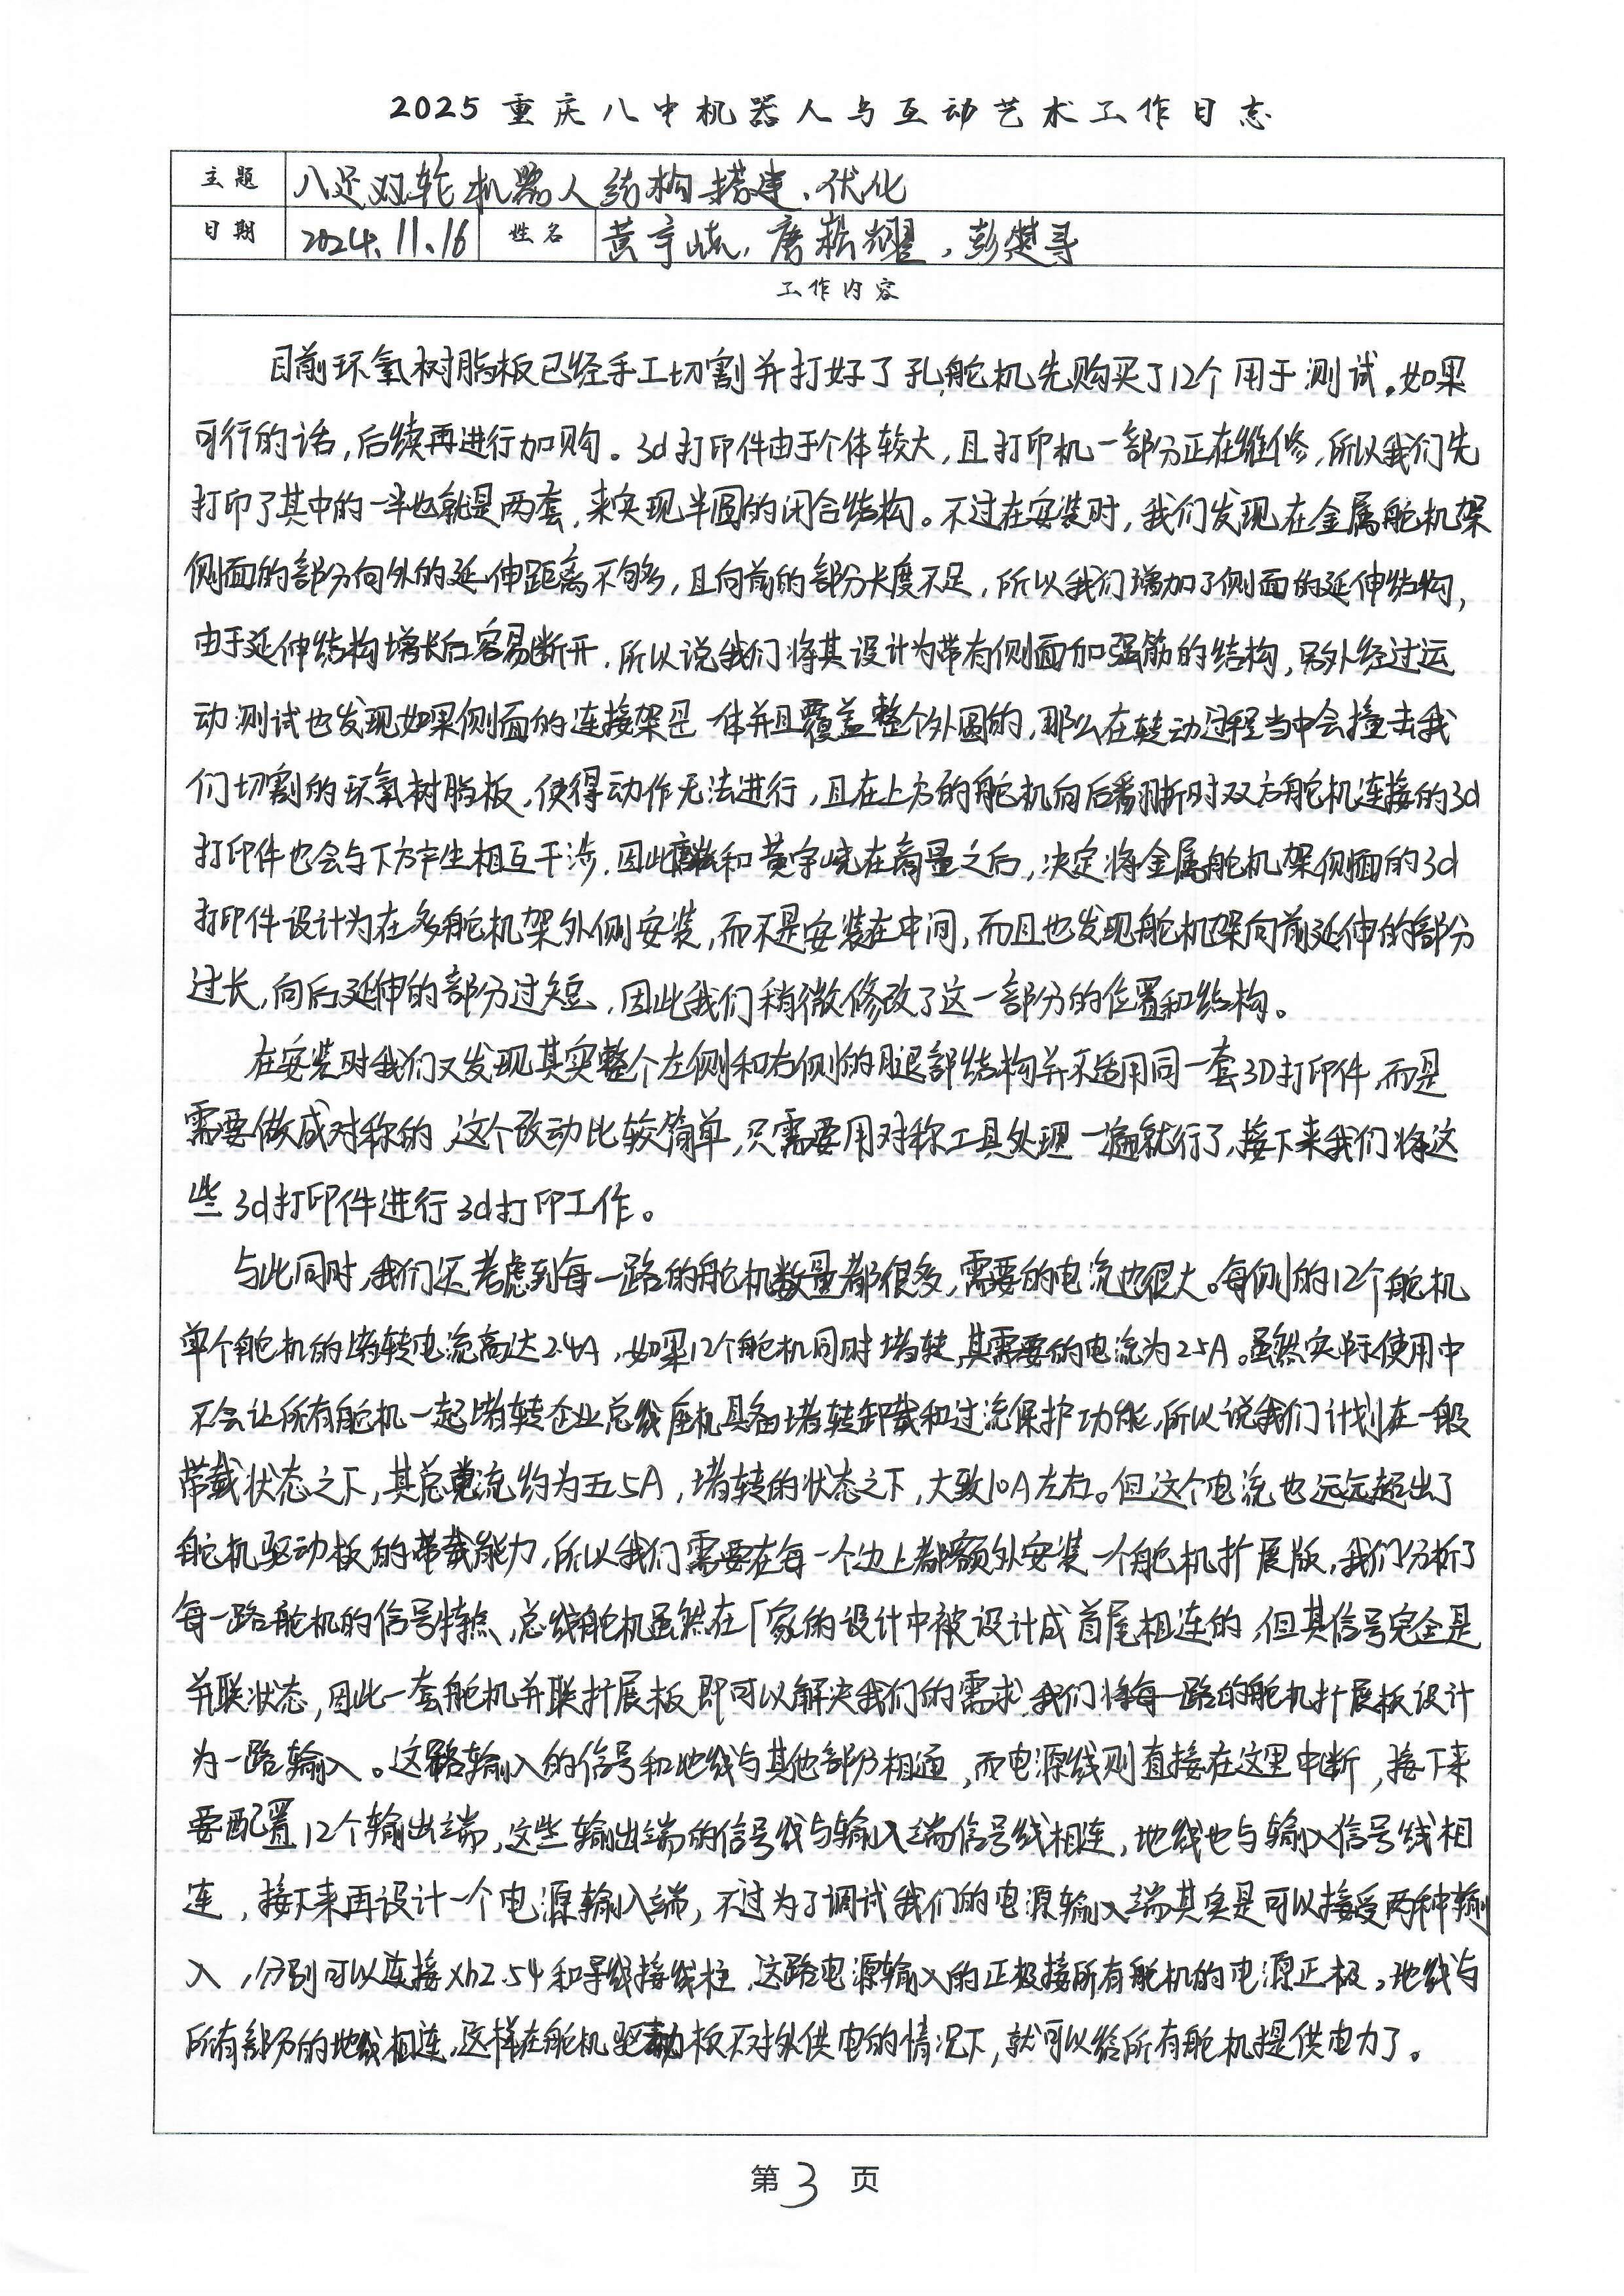 2025重庆八中机器人与互动艺术工作日志
主题 八足双轮机器人结构搭建、优化
日期 2024.11.16 姓名 黄宇峣，唐崧耀，彭楚寻
工作内容
目前环氧树脂板已经手工切割并打好了孔，舵机先购买了12个用于测试。如果
可行的话，后续再进行加购。3d打印件由于个体较大，且打印机一部分正在维修，所以我们先
打印了其中的一半也就是两套，来实现半圆的闭合结构。不过在安装时，我们发现在金属舵机架
侧面的部分向外的延伸距离不够，且向前的部分长度不足，所以我们增加了侧面的延伸结构，
由于延伸结构增长后容易断开，所以说我们将其设计为带有侧面加强筋的结构，另外经过运
动测试也发现如果侧面的连接架是一体并且覆盖整个外圆的，那么在转动过程当中会撞击我
们切割的环氧树脂板，使得动作无法进行，且在上方的舵机向后翻折时双方舵机连接的3d
打印件也会与下方产生相互干涉，因此唐崧和黄宇峣在商量之后，决定将金属舵机架侧面的3d
打印件设计为在多舵机架外侧安装，而不是安装在中间，而且也发现舵机架向前延伸的部分
过长，向后延伸的部分过短，因此我们稍微修改了这一部分的位置和结构。
在安装时我们又发现其实整个左侧和右侧的腿部结构并不适用同一套3D打印件，而是
需要做成对称的，这个改动比较简单，只需要用对称工具处理一遍就行了，接下来我们将这
些3d打印件进行3d打印工作。
与此同时，我们还考虑到每一路的舵机数量都很多，需要的电流也很大。每侧的12个舵机
单个舵机的堵转电流高达2.4A，如果12个舵机同时堵转，其需要的电流为25A。虽然实际使用中
不会让所有舵机一起堵转企业总线座机具备堵转卸载和过流保护功能，所以说我们计划在一般
带载状态之下，其总电流约为五5A，堵转的状态之下，大致10A左右。但这个电流也远远超出了
舵机驱动板的带载能力，所以我们需要在每一个边上都额外安装一个舵机扩展版，我们分析了
每一路舵机的信号特点，总线舵机虽然在厂家的设计中被设计成首尾相连的，但其信号完全是
并联状态，因此一套舵机并联扩展板即可以解决我们的需求，我们将每一路的舵机扩展板设计
为一路输入。这路输入的信号和地线与其他部分相通，而电源线则直接在这里中断，接下来
要配置12个输出端，这些输出端的信号线与输入端信号线相连，地线也与输入信号线相
连，接下来再设计一个电源输入端，不过为了调试我们的电源输入端其实是可以接受两种输
入，分别可以连接xh2.54和导线接线柱，这路电源输入的正极接所有舵机的电源正极，地线与
所有部分的地线相连，这样在舵机驱动板不对外供电的情况下，就可以给所有舵机提供电力了。
第3页